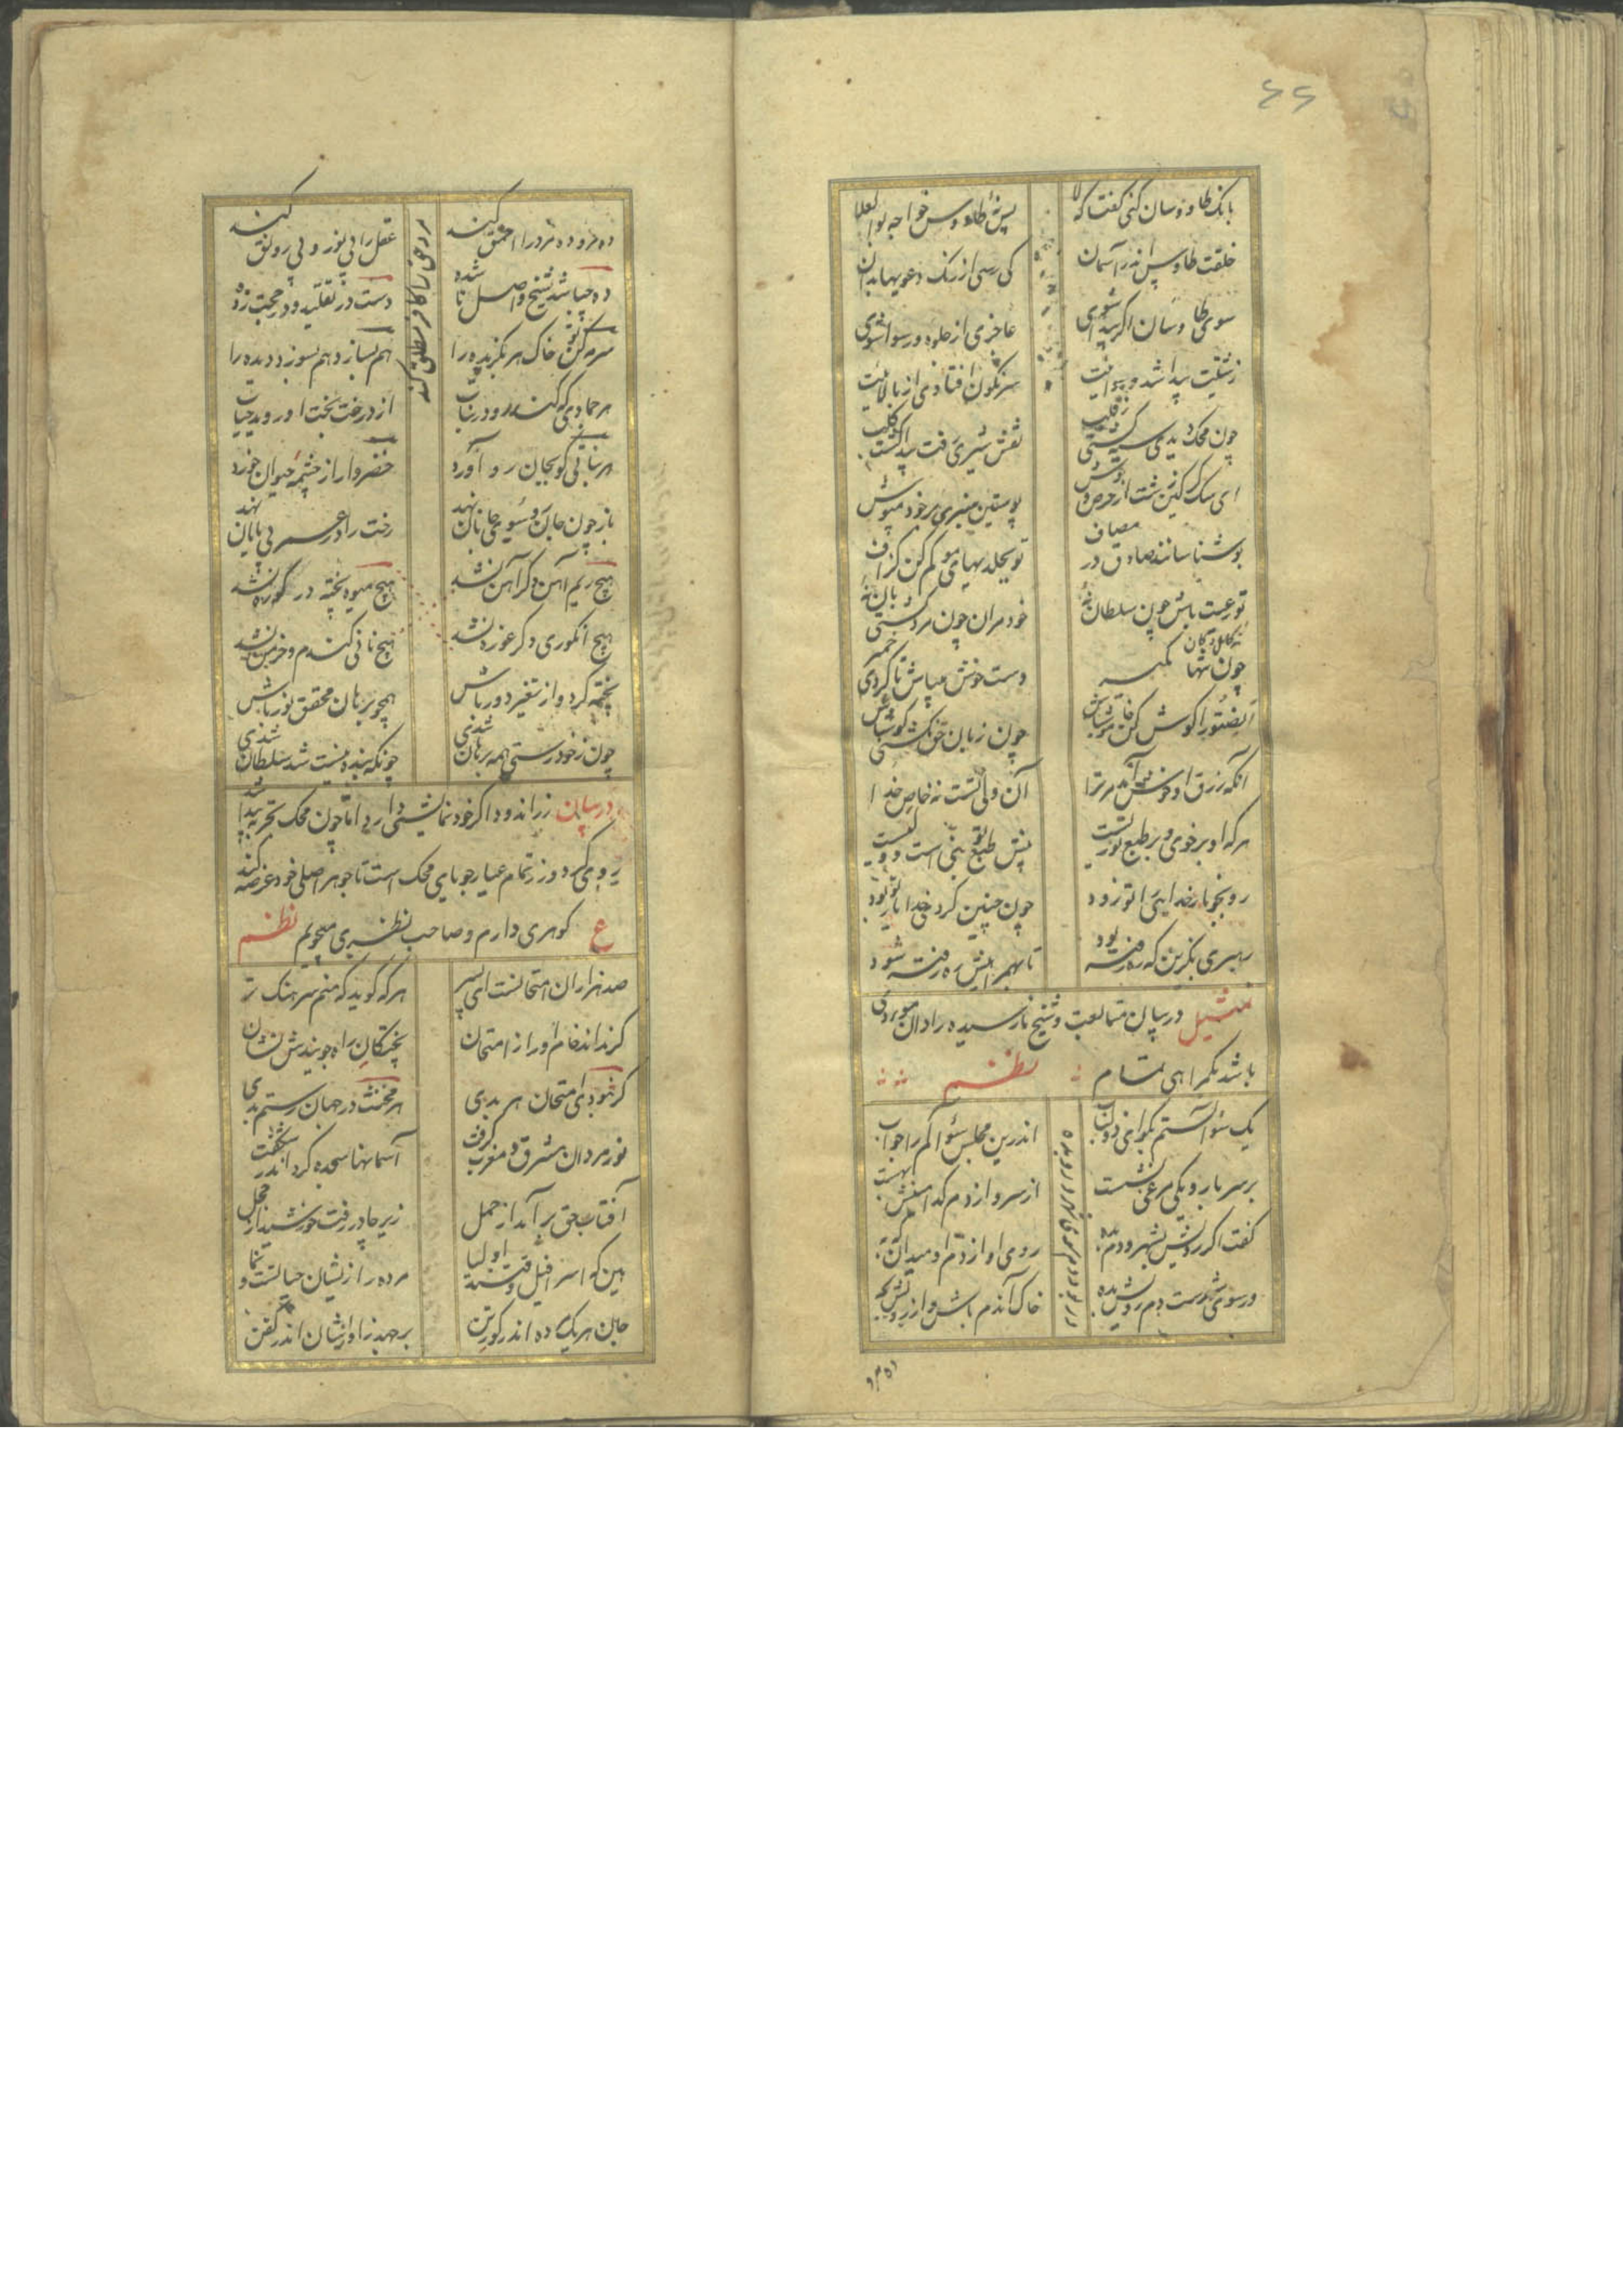 ۶۶
بانک طاوسان کنی گفت که لا
پس نهٔ طاوس خواجه بوالعلا
خلقت طاوس اندر آسمان
کی رسی از رنک دعویها بدان
سوی طاوسان اگر پیدا شوی
عاجزی از جلوه و رسوا شوی
زشتیت پیدا شد و رسوائیت
سرنکون افتادی از بالائیت
چون محک دیدی سیه گشتی چو قلب
نقش شیری رفت پیدا گشت کلب
ای سک کرکین زشت از حرص و جوش
پوستین شیری بر خود مپوش
بو شناسانند صادق در مصاف
تو بجلدیهای هو کم کن گزاف
تو رعیت باش چون سلطان نهٔ
خود مران چون مرد کشتی بان نهٔ
چون نهٔ کامل دکان تنها مگیر
دست خوش میباش تا کردی خمیر
انصتوا را کوش کن خاموش باش
چون زبان حق نکشتی کوش باش
آنکه زرق او خوش آید مر ترا
آن ولی تست نه خاص خدا
هر که او بر خوی و بر طبع تو زیست
پیش طبع تو نبی است و ولیست
رو بجو یار خدایی را تو زود
چون چنین کردی خدا یار تو بود
رهبری بگزین که ره رفته بود
تا بهمراهیش ره رفته شود
تمثیل در بیان متابعت و شیخ نارسیده را دان مؤدی
باشد بکمراهی تمام نظم
یک سؤالستم بکو ای ذو لباب
اندرین مجلس سؤالم را جواب
بر سر بارو یکی مرغی نشست
از سر و از دم کدامینش بهست
گفت اگر رویش بشهر و دم بده
روی او از دم او میدان که به
ور سوی شهرست دم رویش بده
خاک آن دم باش و از رویش بجه
ده مرو ده مرد را احمق کند
عقل را بی نور و بی رونق کند
ده چه باشد شیخ واصل نا شده
دست در تقلید و در حجت زده
سرمه کن تو خاک هر بگزیده را
هم بسازد هم بسوزد دیده را
هر جمادی که کند رو در نبات
از درخت بخت او روید حیات
هر نباتی کو بجان رو آورد
خضروار از چشمهٔ حیوان خورد
باز چون جان رو سوی جانان نهد
رخت را در عمر بی پایان نهد
هیچ ریم آهن دگر آهن نشد
هیچ میوه پخته در کوره نشد
هیچ انکوری دکر غوره نشد
هیچ نانی کندم و خرمن نشد
پخته گرد و از تغیر دور باش
همچو برهان محقق نور باش
چون زخود رستی همه برهان شدی
چونکه بنده نیست شد سلطان شدی
در بیان زراندود اگر خود نمائیشی دارد اما چون محک تجربه پیدا شد
روی کردد و زر تمام عیار جویای محک است تا جوهر اصلی خود عرضه کند
ع کوهری دارم و صاحب نظری میجویم نظم
صد هزاران امتحانست ای پسر
هر که گوید که منم سرهنک تر
گر نداند خام او را ز امتحان
پختکان راه جویندش نشان
گر نبودی امتحان هر بدی
هر مخنث در جهان رستم بدی
نور مردان مشرق و مغرب گرفت
آسمانها سجده کرد اندر شکفت
آفتاب حق بر آمد از حمل
زیر چادر رفت خورشید از خجل
هین که اسرافیل وقتند اولیا
مرده را زیشان حیاتست و نما
جان هر یک مرده اندر کور تن
بر جهد ز آوازشان اندر کفن